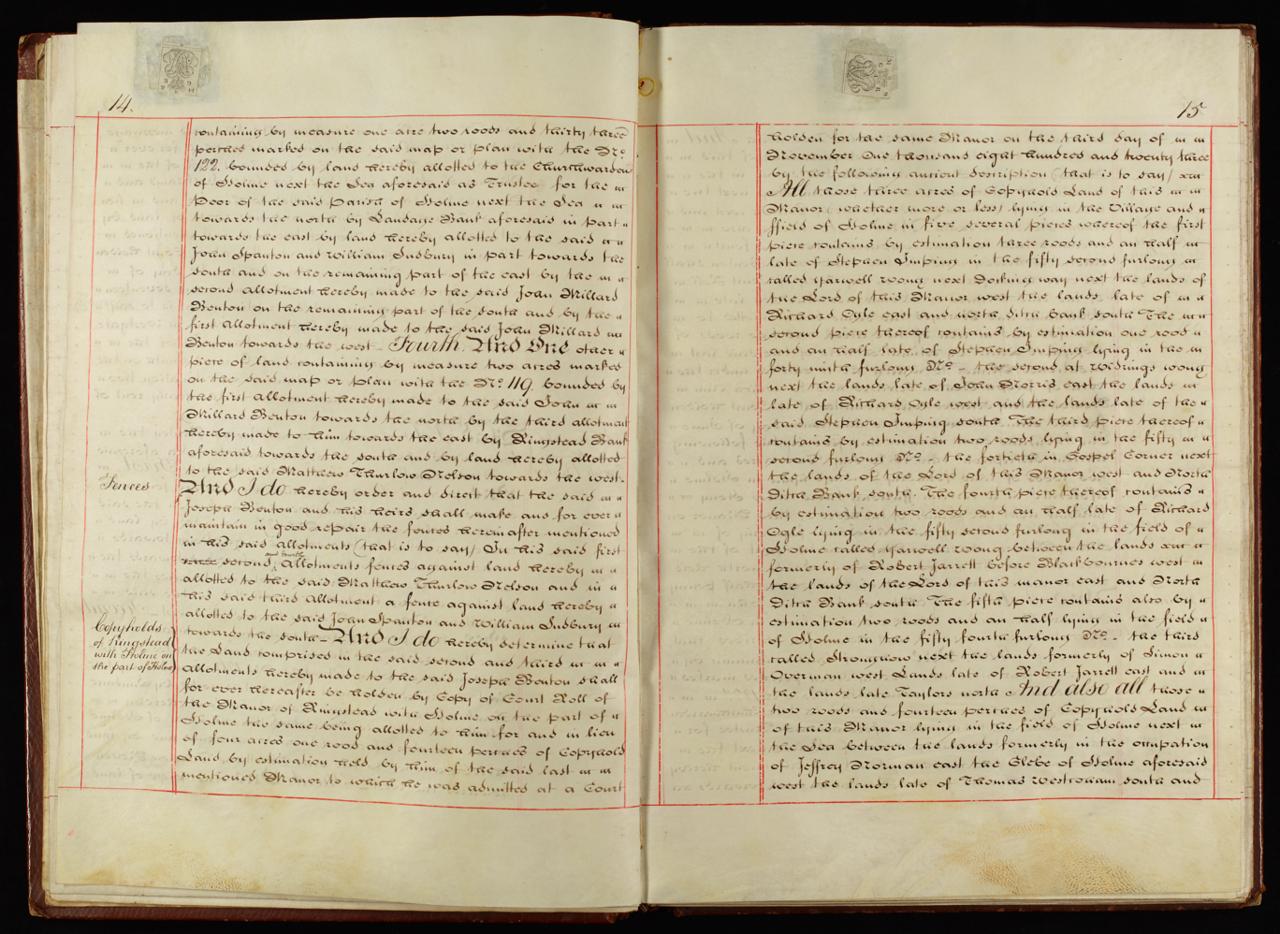 14.
containing by measure one acre two roods and thirty three
perches marked on the said map or plan with the No.
122. bounded by land hereby allotted to the Churchwarden
of Holme next the Sea aforesaid as Trustee for the
Poor of the said Parish of Holme next the Sea
towards the north by Landage Bank aforesaid in part
towards the east by land hereby allotted to the said
John Spanton and William Sudbury in part towards the
south and on the remaining part of the east by the
second allotment hereby made to the said John Millard
Benton on the remaining part of the south and by the
first allotment hereby made to the said John Millard
Benton towards the west. Fourth And One other
piece of land containing by measure two acres marked
on the said map or plan with the No. 119. bounded by
the first allotment hereby made to the said John
Millard Benton towards the north by the third allotment
hereby made to him towards the east by Ringstead Bank
aforesaid towards the south and by land hereby allotted
to the said Matthew Thurlow Nelson towards the west.
Fences
And I do hereby order and direct that the said
Joseph Benton and his heirs shall make and for ever
maintain in good repair the fences hereinafter mentioned
in his said allotments (that is to say) In his said first
and fourth
second, Allotments fences against land hereby
allotted to the said Matthew Thurlow Nelson and in
his said third allotment a fence against land hereby
allotted to the said John Spanton and William Sudbury
Copyholds
of Ringstead
with Holme on
the part of Holme
towards the south And I do hereby determine that
the Land comprised in the said second and third
allotments hereby made to the said Joseph Benton shall
for ever hereafter be holden by Copy of Court Roll of
the Manor of Ringstead with Holme on the part of
Holme the same being allotted to him for and in lieu
of four acres one rood and fourteen perches of Copyhold
Land by estimation held by him of the said last
mentioned Manor to which he was admitted at a Court
15
holden for the same Manor on the third day of
November One thousand eight hundred and twenty three
by the following ancient description (that is to say)
All those three acres of Copyhold Land of this
Manor (whether more or less) lying in the Village and
ffield of Holme in five several pieces whereof the first
piece contains by estimation three roods and an half
late of Stephen Imping in the fifty second furlong
called Yarwell wong next Docking way next the lands of
the Lord of this Manor west the lands late of
Richard Ogle east and north ditch bank south The
second piece thereof contains by estimation one rood
and an half late of Stephen Imping lying in the
forty ninth furlong No. the second at wong
next the lands late of John Norris east the lands
late of Richard Ogle west and the lands late of the
said Stephen Imping south. The third piece thereof
contains by estimation two roods lying in the fifty
second furlong No. the fortieth in Gospel Corner next
the lands of the Lord of this Manor west and North
Ditch Bank south. The fourth piece thereof contains
by estimation two roods and an half late of Richard
Ogle lying in the fifty second furlong in the field of
Holme called Yarwell wong between the lands
formerly of Robert Jarrett before Blackbournes west
the lands of the Lord of this manor east and North
Ditch Bank south. The fifth piece contains also by
estimation two roods and an half lying in the field
of Holme in the fifty fourth furlong No. the third
called next the lands formerly of Simon
Overman west Lands late of Robert Jarrett east and
the lands late Taylors north And also all those
two roods and fourteen perches of Copyhold Land
of this Manor lying in the field of Holme next
the Sea between the lands formerly in the occupation
of Jeffrey Norman east the Glebe of Holme aforesaid
west the lands late of Thomas south and